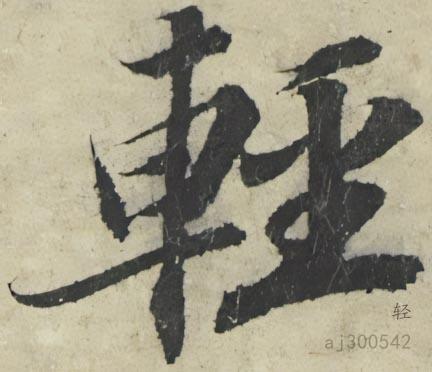 輕
轻
aj300542